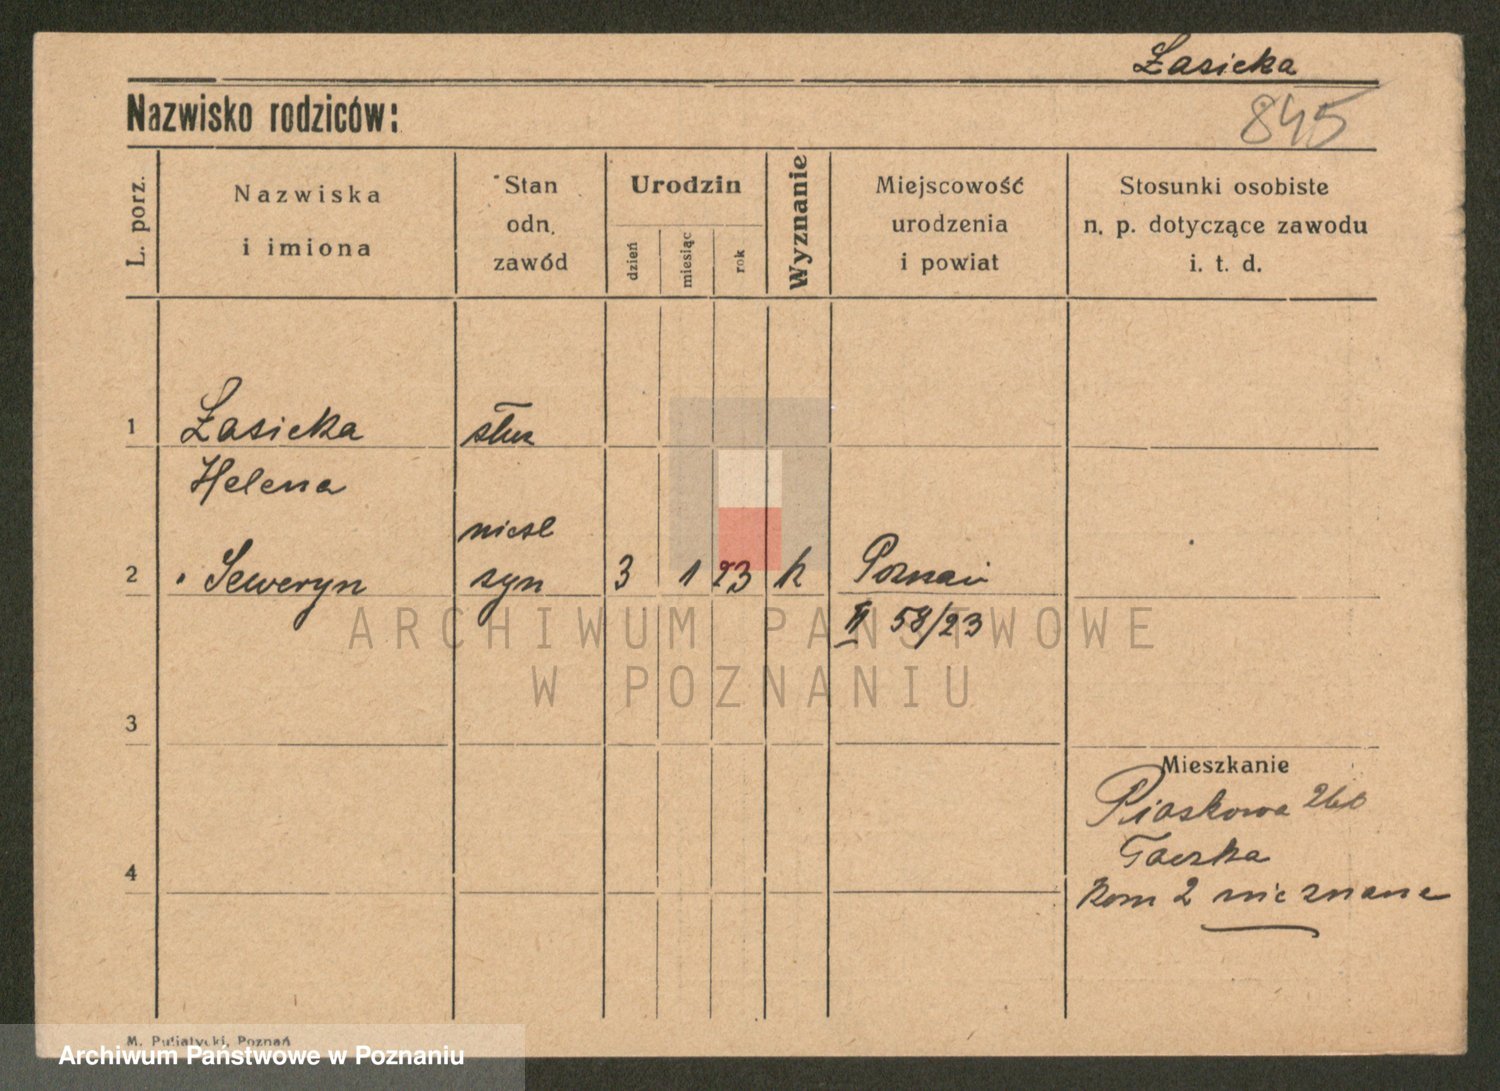 Łasicka
845
Nazwisko rodziców:
L. porz.
Nazwiska
i imiona
Stan
odn.
zawód
Urodzin
dzień
miesiąc
rok
Wyznanie
Miejscowość
urodzenia
i powiat
Stosunki osobiste
n. p. dotyczące zawodu
i. t. d.
1 Łasicka służ
Helena
nieśl
2 Seweryn syn 3 1 23 k Poznań
II 58/23
3
Mieszkanie
Piaskowa
4
kom 2 nie znane
M. Putiatycki, Poznań
ARCHIWUM PAŃSTWOWE
W POZNANIU
Archiwum Państwowe w Poznaniu